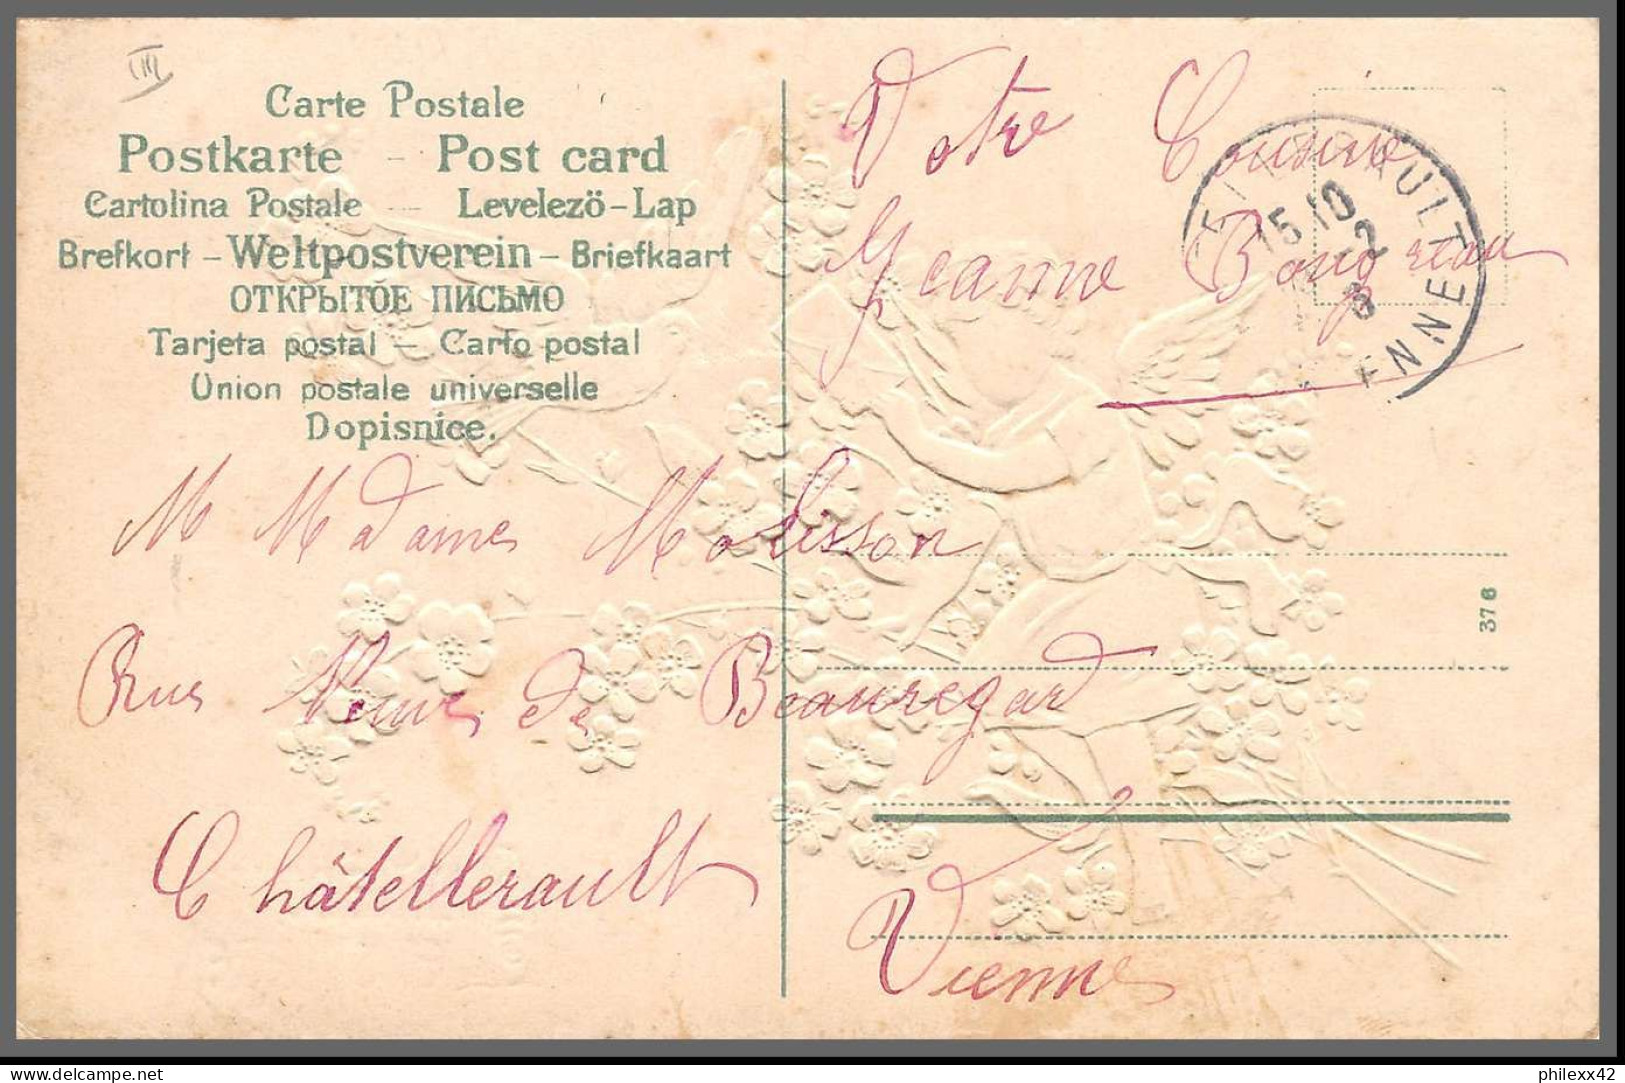 III
Carte Postale
Postkarte - Post card
Cartolina Postale - Levelezö-Lap
Brefkort - Weltpostverein - Briefkaart
ОТКРЫТОЕ ПИСЬМО
Tarjeta postal - Carto postal
Union postale universelle
Dopisnice.
Votre Cousine
Jeanne
15 10
2
ENNE
M Madame
Rue Neuve de Beauregard
Châtellerault
Vienne
376
philexx42
delcampe.net